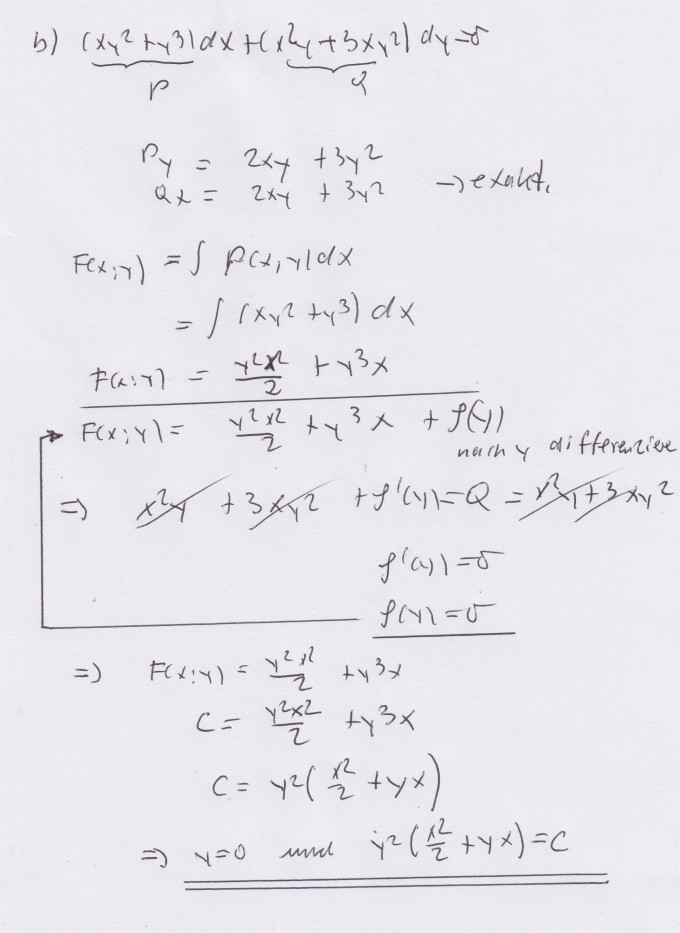 b) (xy² + y³) dx + (x²y + 3xy²) dy = 0
P Q
Py = 2xy + 3y²
Qx = 2xy + 3y² → exakt.
F(x;y) = ∫ P(x,y) dx
= ∫ (xy² + y³) dx
F(x;y) = y²x²/2 + y³x
F(x;y) = y²x²/2 + y³x + f(y)
nach y differenziere
⇒ x²y + 3xy² + f'(y) = Q = x²y + 3xy²
f'(y) = 0
f(y) = 0
⇒ F(x;y) = y²x²/2 + y³x
C = y²x²/2 + y³x
C = y²(x²/2 + yx)
⇒ y=0 und y²(x²/2 + yx) = C